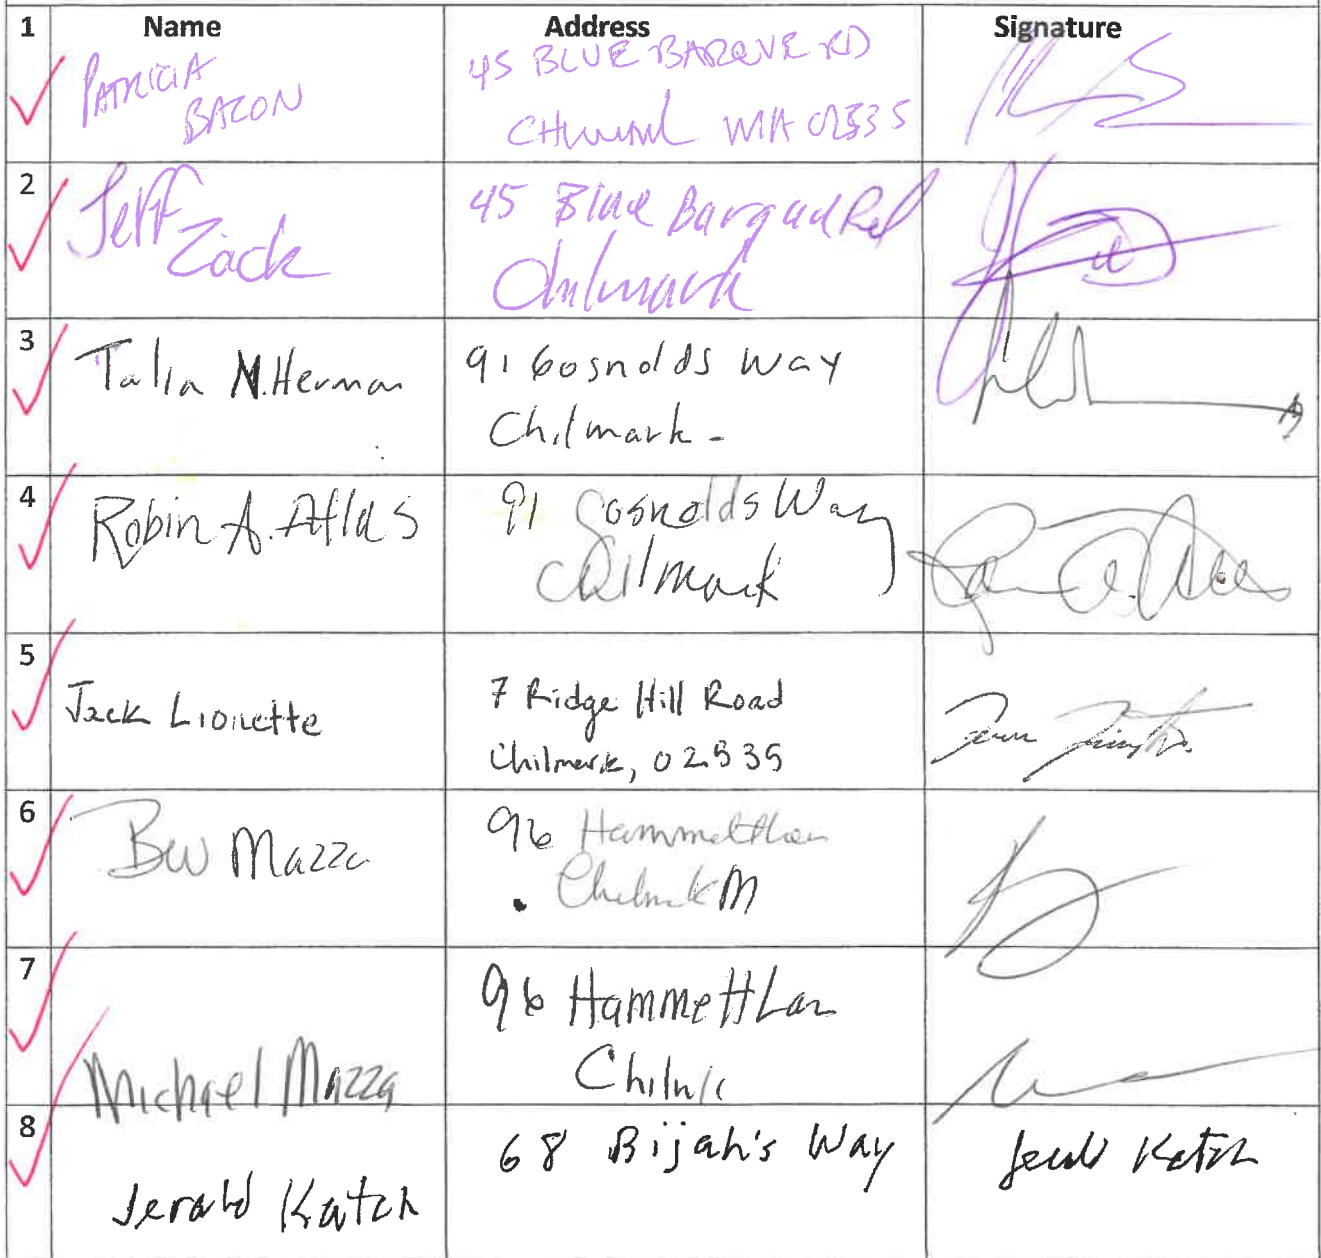 1 Name Address Signature
PATRICIA
BACON
45 BLUE BARQUE RD
CHILMARK MA 02535
2
Jeff
Zack
45 Blue Barque Rd
Chilmark
3
Talia N. Herman
91 Gosnolds Way
Chilmark -
4
Robin A. Atlas
91 Gosnolds Way
Chilmark
5
Jack Lionette
7 Ridge Hill Road
Chilmark, 02535
6
Mazza
96 Hammett Lan
Chilmark M
7
Michael Mazza
96 Hammett Lan
8
Jerald Katch
68 Bijah's Way
Jerald Katch